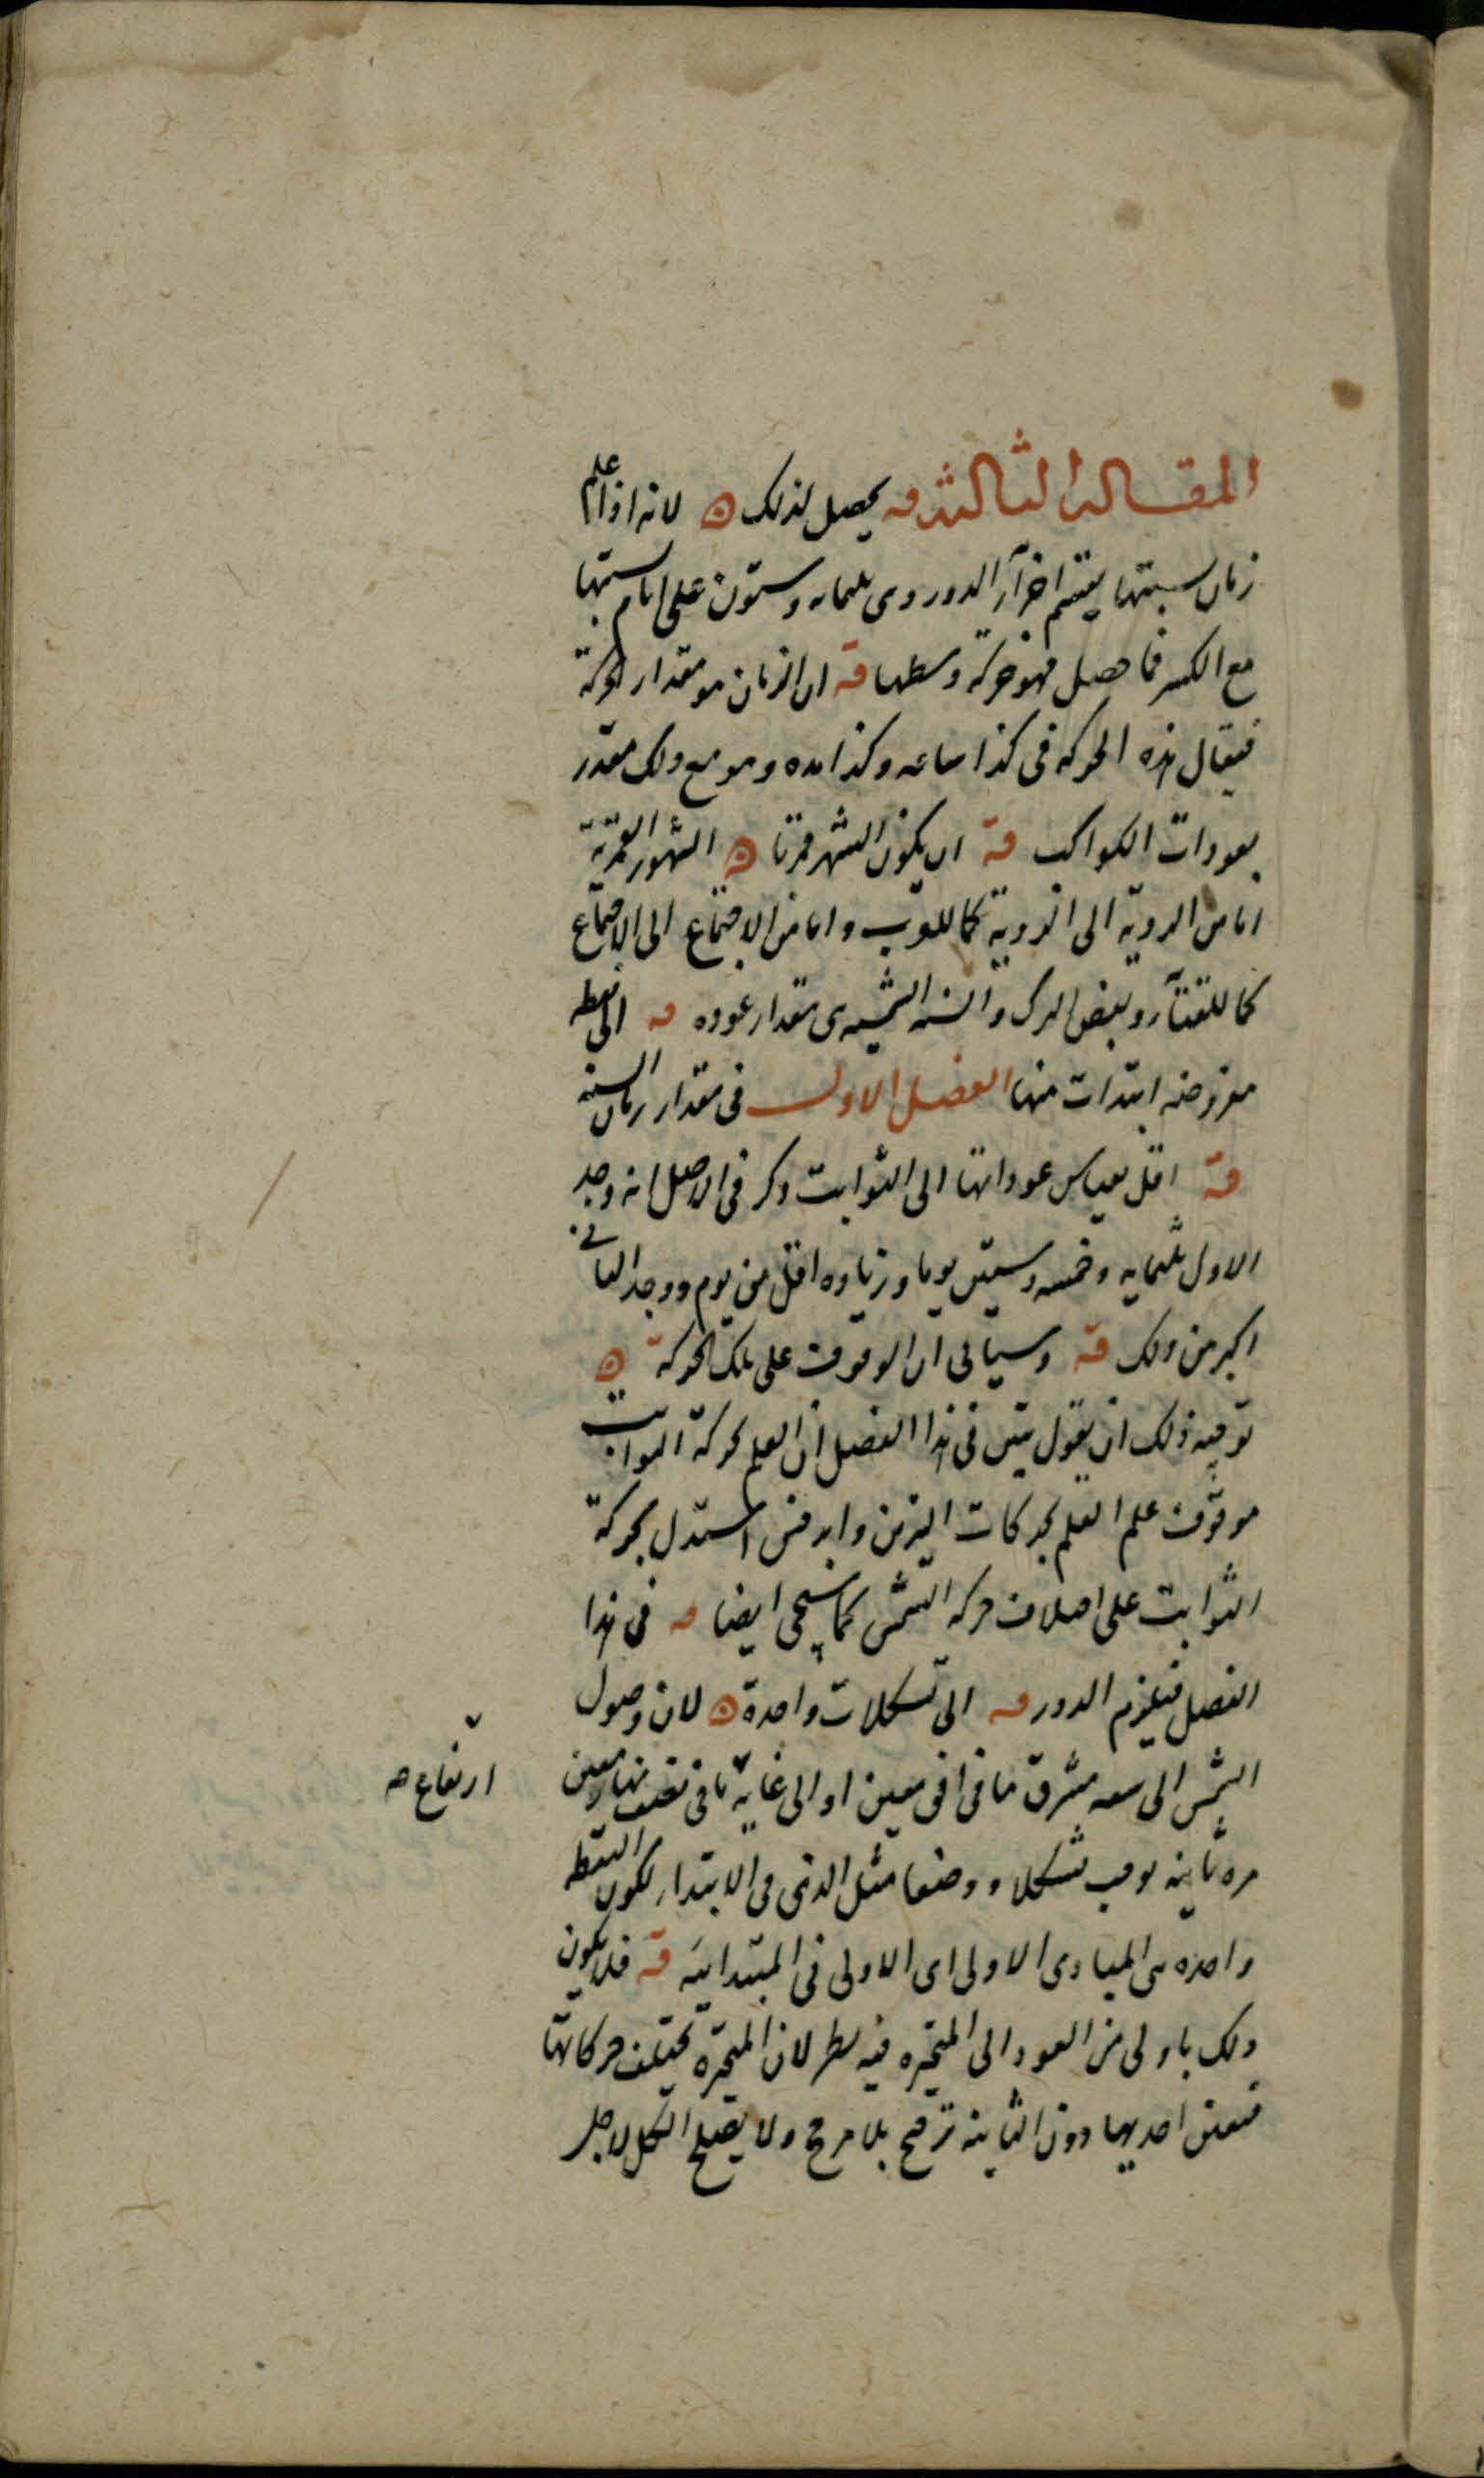 المقالة الثالثة قه يحصل لذلك ه لانه اذا علم
زمان سنتها يقسم اجزآء الدور وهى ثلثمايه وستون على ايام سنتها
مع الكسر فما حصل فهو حركة وسطها قه ان الزمان هو مقدار الحركة
فيقال هذه الحركه فى كذا ساعه وكذا مده وهو مع ذلك مقدر
بعودات الكواكب قه ان يكون الشهر قمريا ه الشهور القمرية
اما من الروية الى الروية كما للعرب واما من الاجتماع الى الاجتماع
كما للقتآء وبعض الترك والسنه الشمسيه هى مقدار عوده قه الى نقطه
مفروضه ابتدات منها الفصل الاول فى مقدار زمان السنه
قه اقل بقياس عوداتها الى الثوابت ذكر فى الاصل انه وجد
الاول ثلثمايه وخمسه وستين يوما وزياده اقل من يوم ووجد الثانى
اكبر من ذلك قه وسياتى ان الوقوف على تلك الحركة ه
توجيه ذلك ان يقول تبين فى هذا الفصل ان العلم بحركة الثوابت
موقوف علم العلم بحركات النيرين وابرخس استدل بحركة
الثوابت على اختلاف حركه الشمس كما سيجى ايضا قه فى هذا
الفصل فيلزم الدور قه الى تشكلات واحدة ه لان وصول
الشمس الى سعه مشرق ما فى افق معين او الى غاية ما فى نصف نهار معين
ارتفاع صه
مره ثانيه يوجب تشكلا ووضعا مثل الذى فى الابتداء لكون النقطه
واحده هى المبادى الاولى اى الاولى فى المبتدائيه قه فلا يكون
ذلك باولى من العود الى المتحيره فيه نظر لان المتحيرة تختلف حركاتها
فتعين احديهما دون الثانية ترجيح بلا مرجح ولا يصلح الكل لاجل